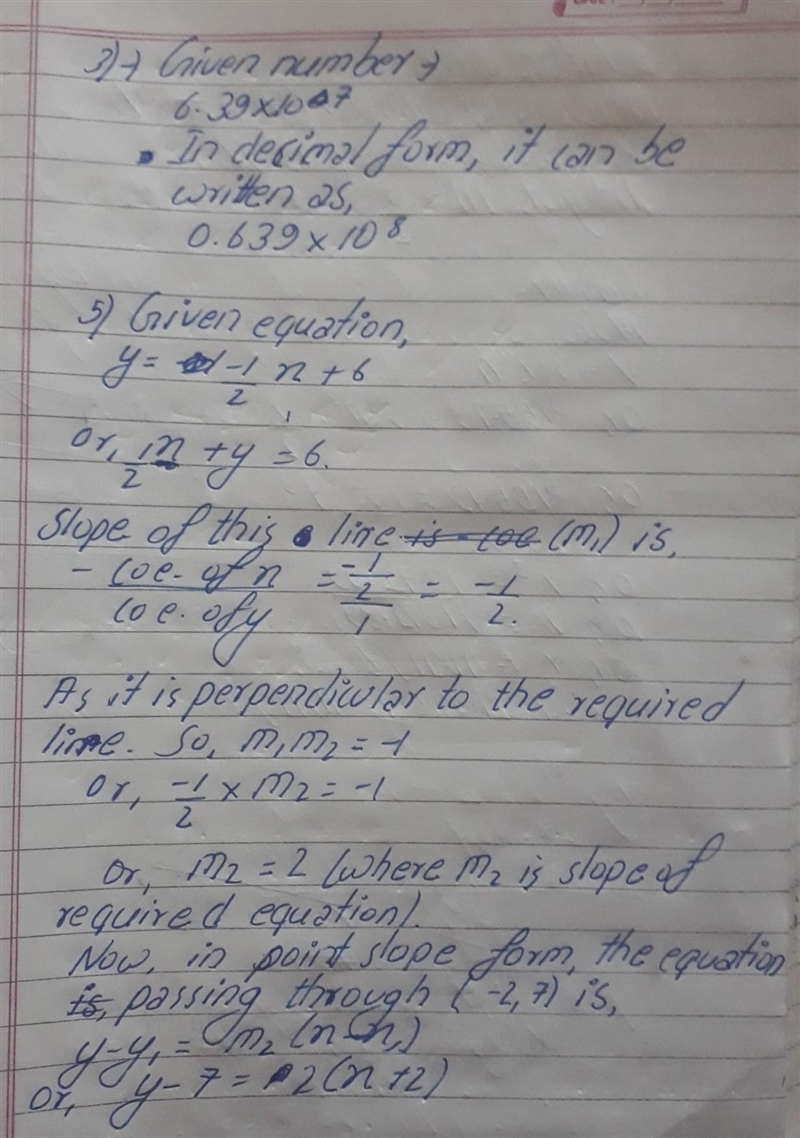 3)→ Given number→
6.39×10^7
• In decimal form, it can be
written as,
0.639×10^8
5) Given equation,
y= -1/2 n + 6
or, n/2 + y = 6.
Slope of this line is coe (m₁) is,
- coe. of n / coe. of y = -1/2 / 1 = -1/2.
As it is perpendicular to the required
line. So, m₁m₂ = -1
or, -1/2 × m₂ = -1
or, m₂ = 2 (where m₂ is slope of
required equation).
Now, in point slope form, the equation
is, passing through (-2,7) is,
y-y₁ = m₂ (n-n₁)
or, y-7 = 2(n+2)